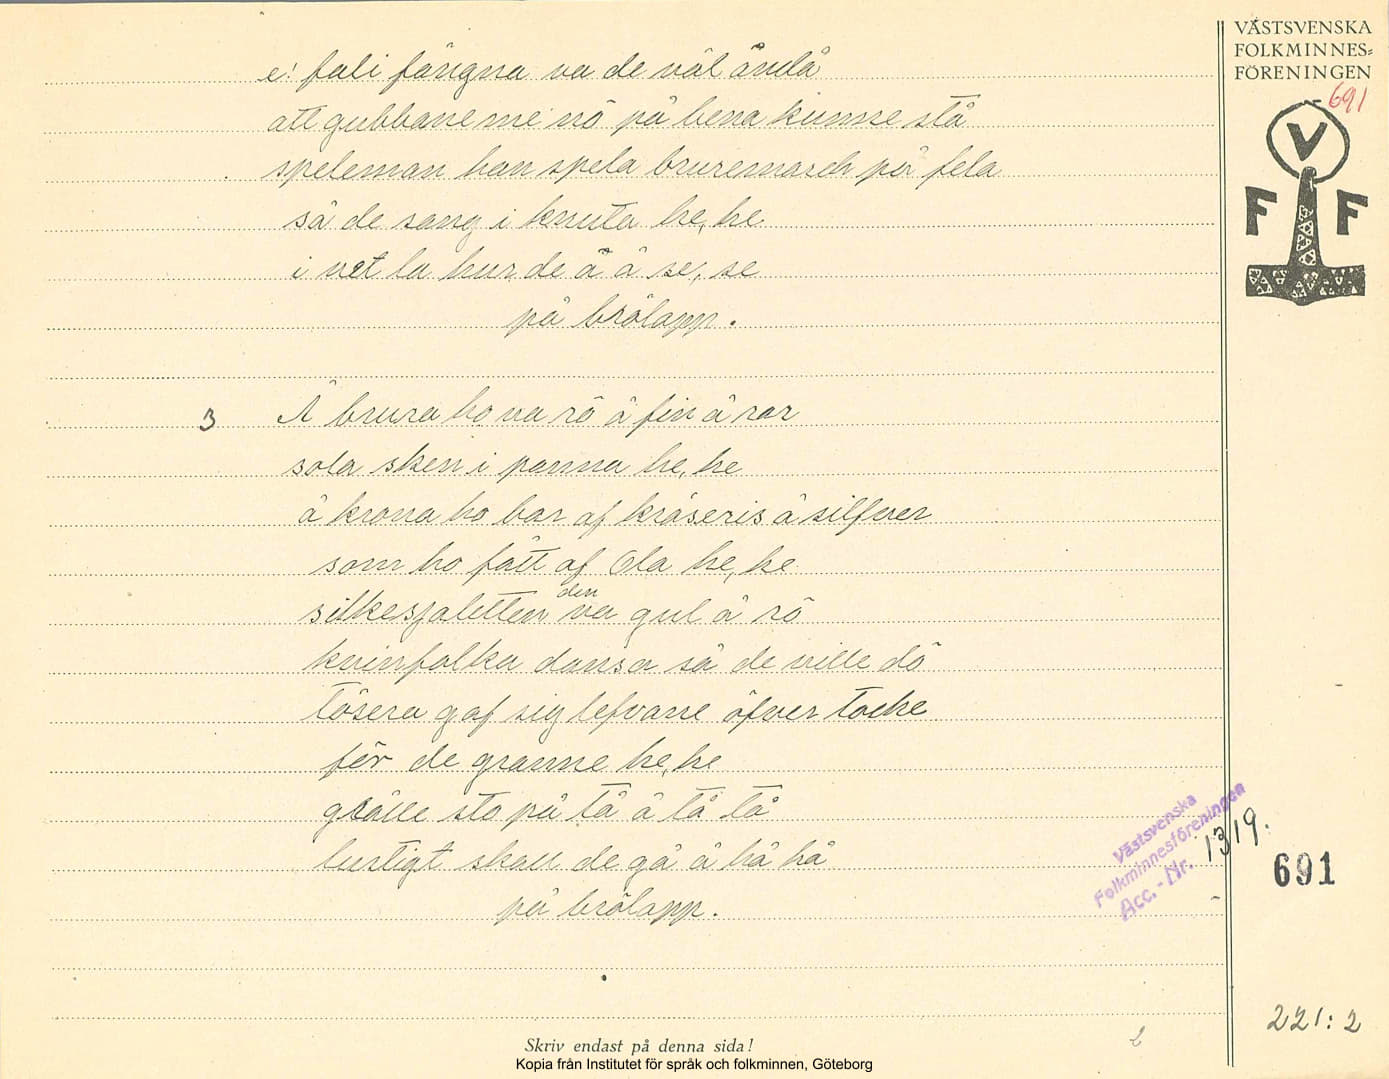 VÄSTSVENSKA
FOLKMINNES-
FÖRENINGEN
691
V
F F
e! fali fängna va de väl ändå
att gubbane me nö på bena kunne stå
speleman han spela bruremarch på fela
så de sang i knuta he, he
i vet la hur de ä å se, se
på brölapp.
3 Å brura ho va rö å fin å rar
sola sken i panna he, he
å krona ho bar af kråseris å silfver
som ho fått af Ola he, he
silkesjaletten den va gul å rö
kvinfolka dansa så de ville dö
tösera gaf sig lefvane öfver tocke
för de granne he, he
gbälle sto på tå å tå tå
lustigt skall de gå å hå hå
på brölapp.
Västsvenska
Folkminnesföreningen
Acc.-Nr. 1319.
691
221:2
2
Skriv endast på denna sida!
Kopia från Institutet för språk och folkminnen, Göteborg